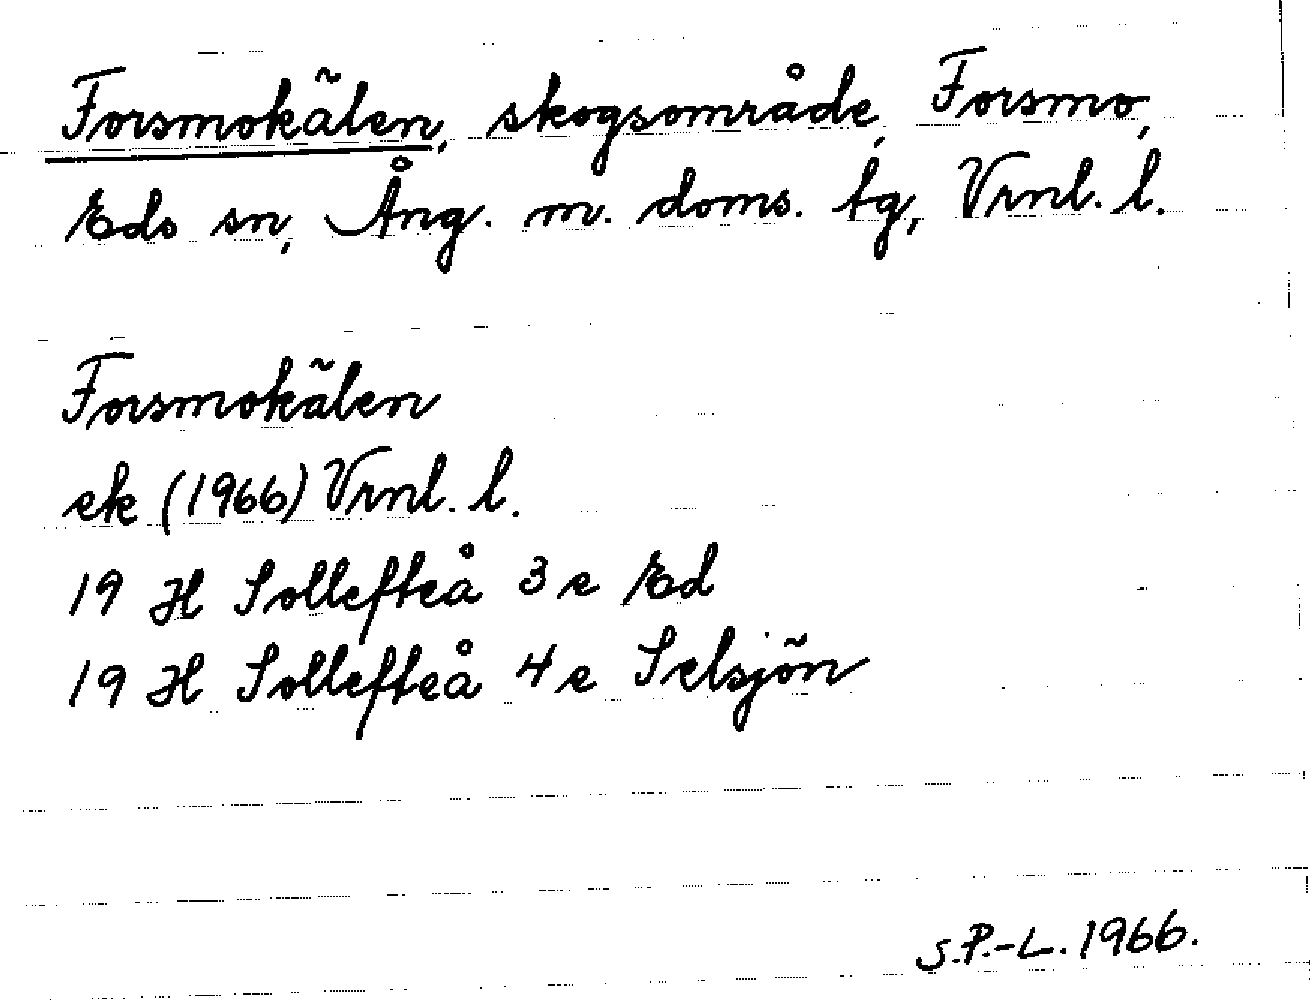 Forsmokälen, skogsområde, Forsmo,
Eds sn, Ång. m. doms. tg, Vrnl. l.
Forsmokälen
ek (1966) Vrnl. l.
19 H Sollefteå 3 e Ed
19 H Sollefteå 4 e Selsjön
S.P.-L. 1966.